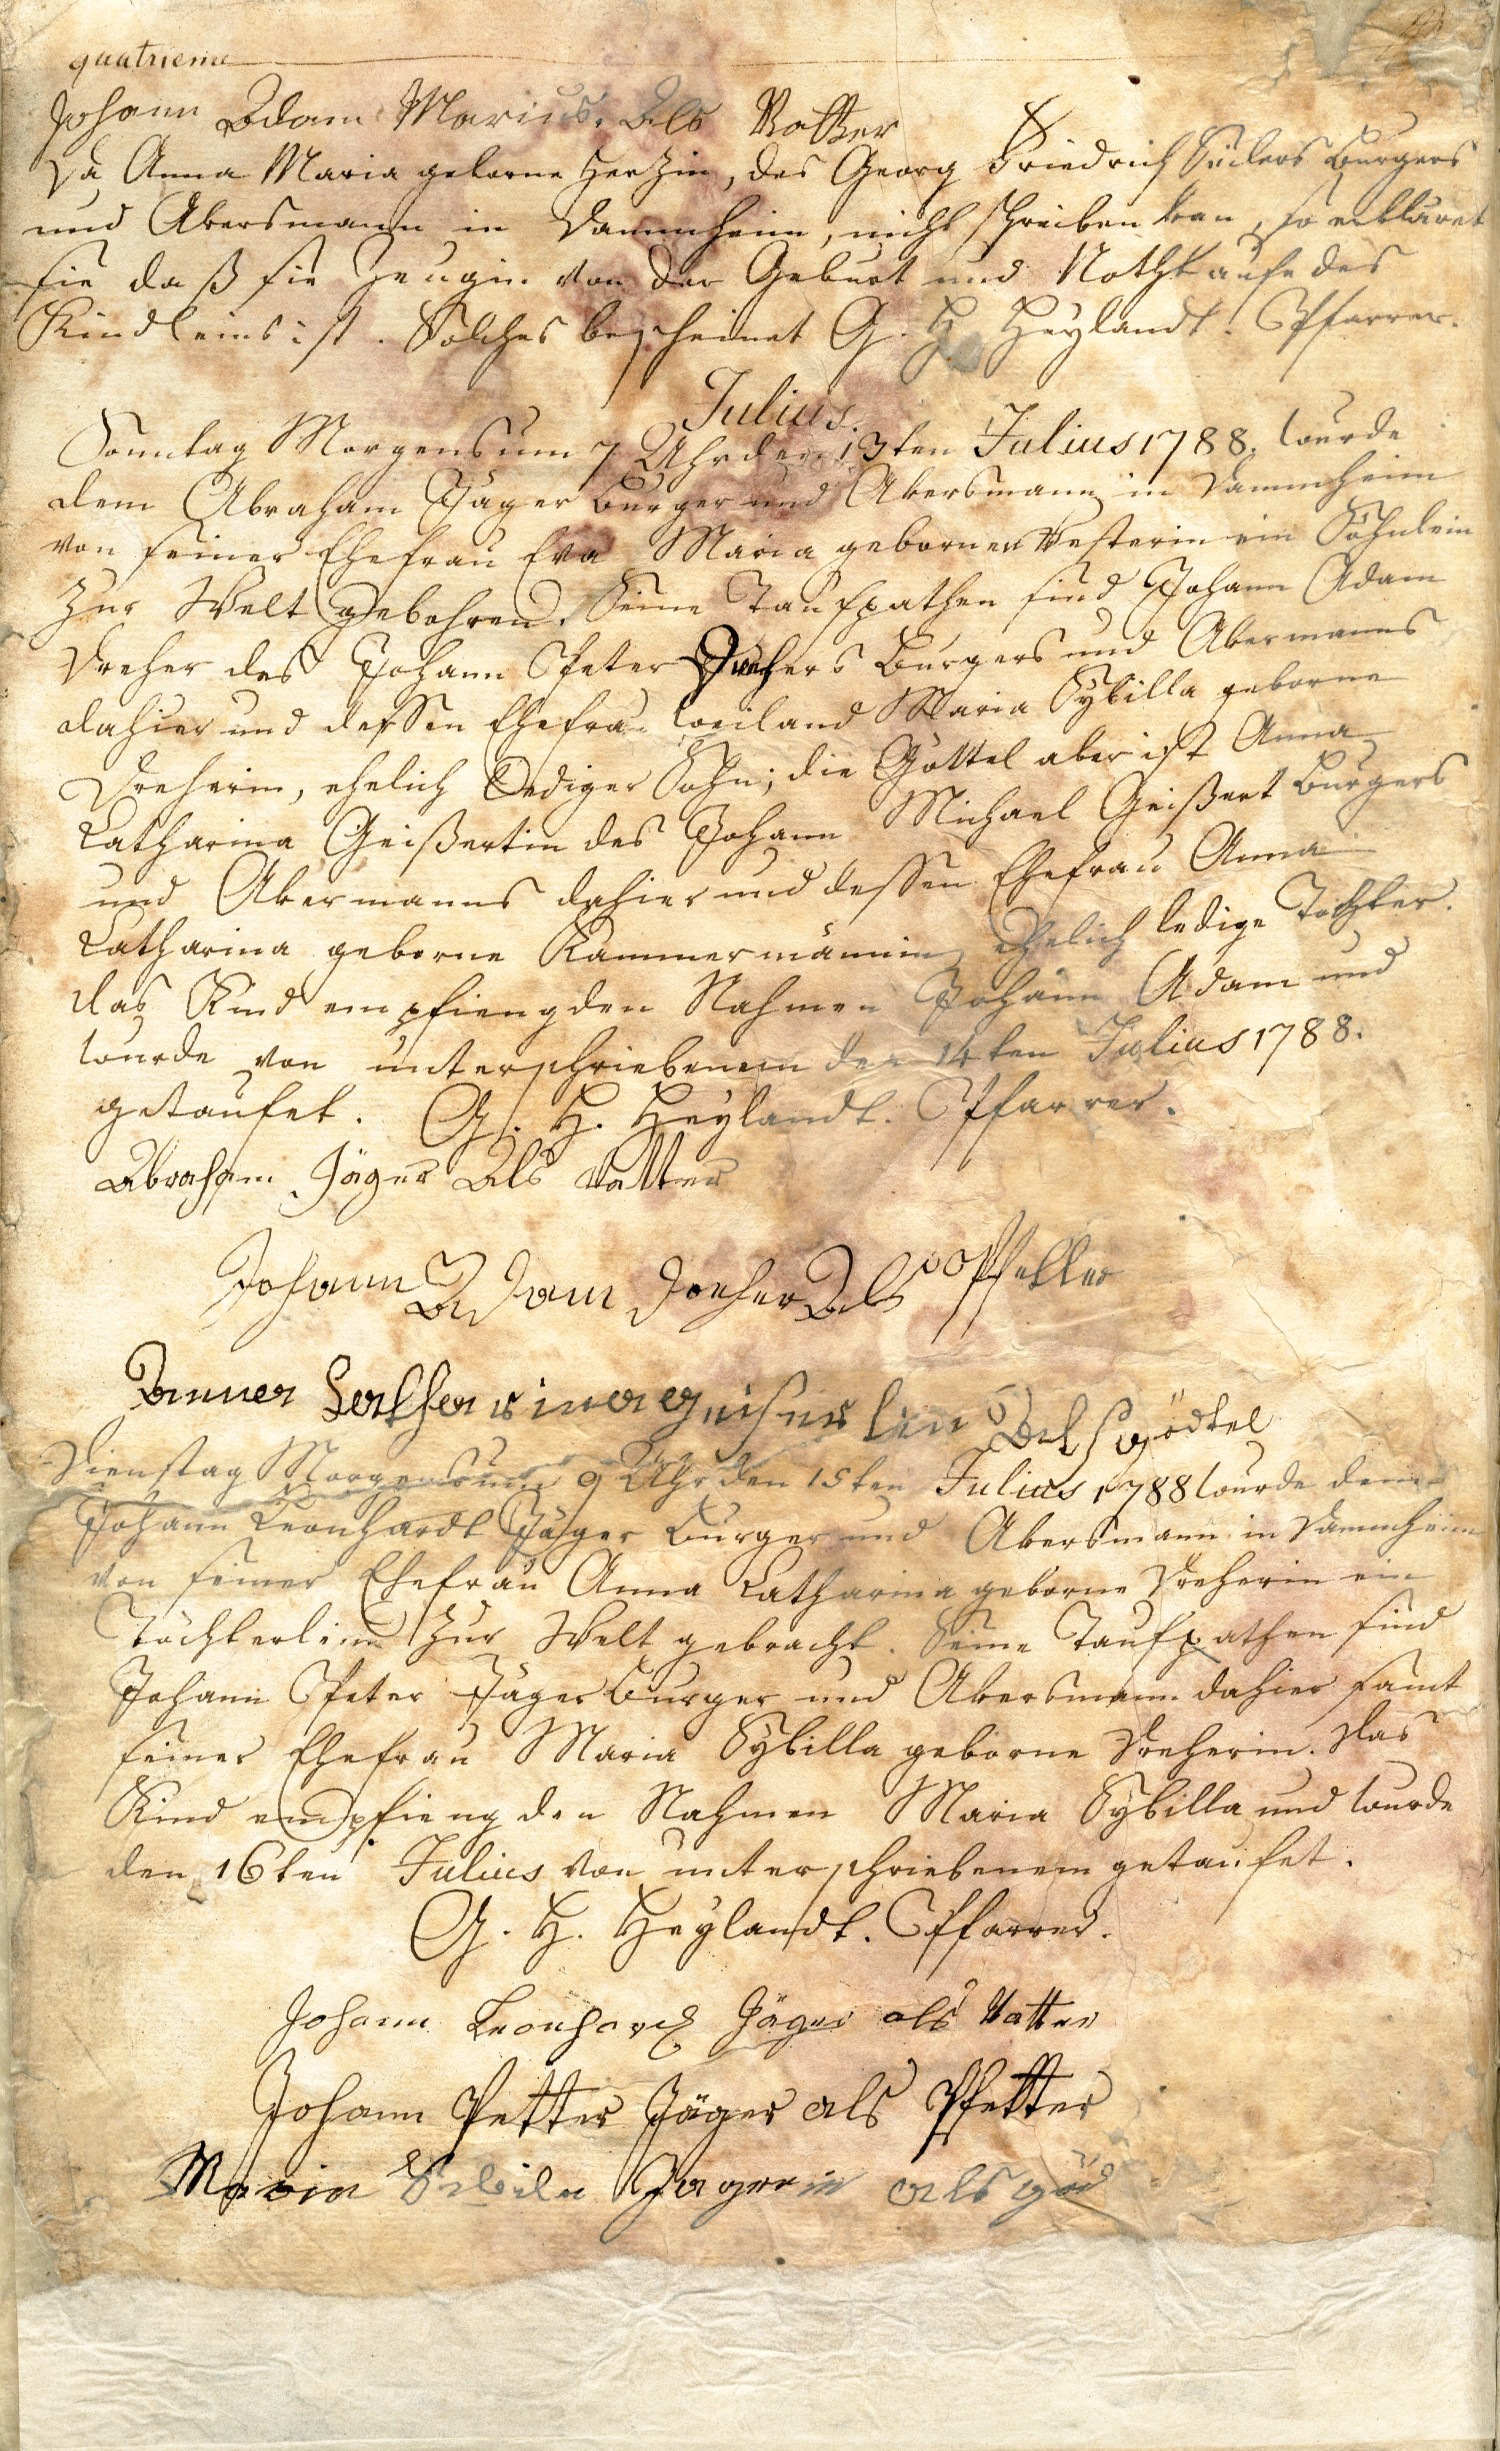 quatrieme
Johann Adam Marius. Als Vatter
Da Anna Maria geborne Herzin, des Georg Friedrich Burgers
und Akersmann in Dammheim, nicht schreiben kan, so erkläret
sie daß sie Zeugin von der Geburt und Nothtaufe des
Kindleins ist. Solches bescheinet G. H. Heylandt. Pfarrer.
Julius.
Sonntag Morgens um 7 Uhr den 13ten Julius 1788. wurde
dem Abraham Jäger Burger und Akersmann in Dammheim
von seiner Ehefrau Eva Maria geborner Westerin ein Söhnlein
zur Welt gebohren. Seine Taufpathen sind Johann Adam
Dreher des Johann Peter Drehers Burgers und Akermanns
dahier und dessen Ehefrau weiland Maria Sybilla geborne
Dreherin, ehelich lediger Sohn; die Göttel aber ist Anna
Catharina Geißertin des Johann Michael Geißert Burgers
und Akermanns dahier und dessen Ehefrau Anna
Catharina geborne Kammermännin ehelich ledige Tochter.
das Kind empfieng den Nahmen Johann Adam und
wurde von unterschriebenem den 14ten Julius 1788.
getaufet. G. H. Heylandt. Pfarrer.
Abraham Jäger Als Vatter
Johann Adam Dreher Als Pfetter
Anner Als Gödtel
Dienstag Morgens um 9 Uhr den 15ten Julius 1788 wurde dem
Johann Leonhardt Jäger Burger und Akersmann in Dammheim
von seiner Ehefrau Anna Catharina geborne Dreherin ein
Töchterlein zur Welt gebracht. Seine Taufpathen sind
Johann Peter Jäger Burger und Akersmann dahier samt
seiner Ehefrau Maria Sybilla geborne Dreherin. Das
Kind empfieng den Nahmen Maria Sybilla und wurde
den 16ten Julius von unterschriebenem getaufet.
G. H. Heylandt. Pfarrer.
Johann Leonhard Jäger als Vatter
Johann Petter Jäger als Pfetter
Maria Jagerin als göd